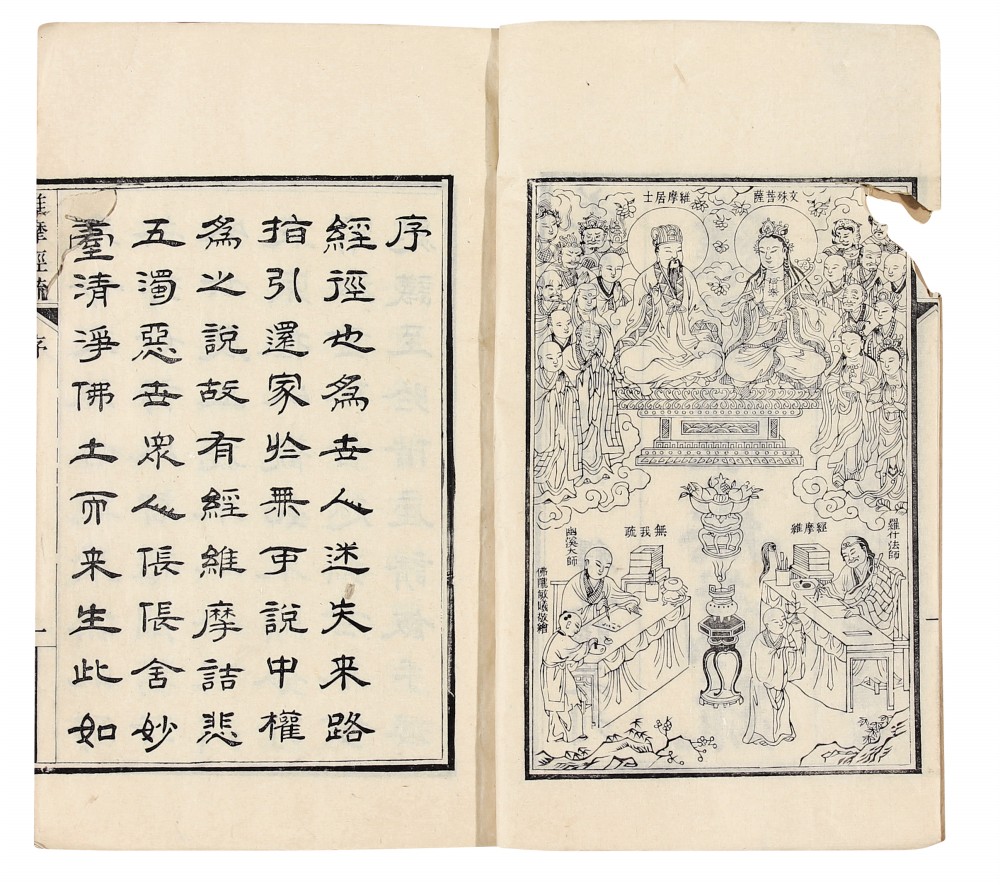 文殊菩薩
維摩居士
羅什法師
維摩經
無我疏
幽溪大師
佛隴敏曦敬繪
一
序
經徑也爲世人迷失來路
指引還家於無可說中權
爲之說故有經維摩詰悲
五濁惡世眾人倀倀舍妙
喜清淨佛土而來生此如
維摩經疏
序
一